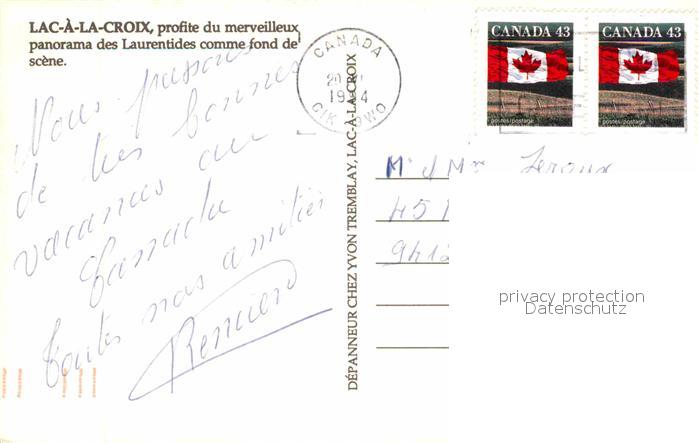 LAC-À-LA-CROIX, profite du merveilleux
panorama des Laurentides comme fond de
scène.
Nous passons
de très bonnes
vacances au
Cannada
Toutes nos amitiés
CANADA
20
1994
G1K 0W0
CANADA 43
postes/postage
CANADA 43
postes/postage
DÉPANNEUR CHEZ YVON TREMBLAY, LAC-À-LA-CROIX
Mr et Mme Leroux
451
9412
privacy protection
Datenschutz